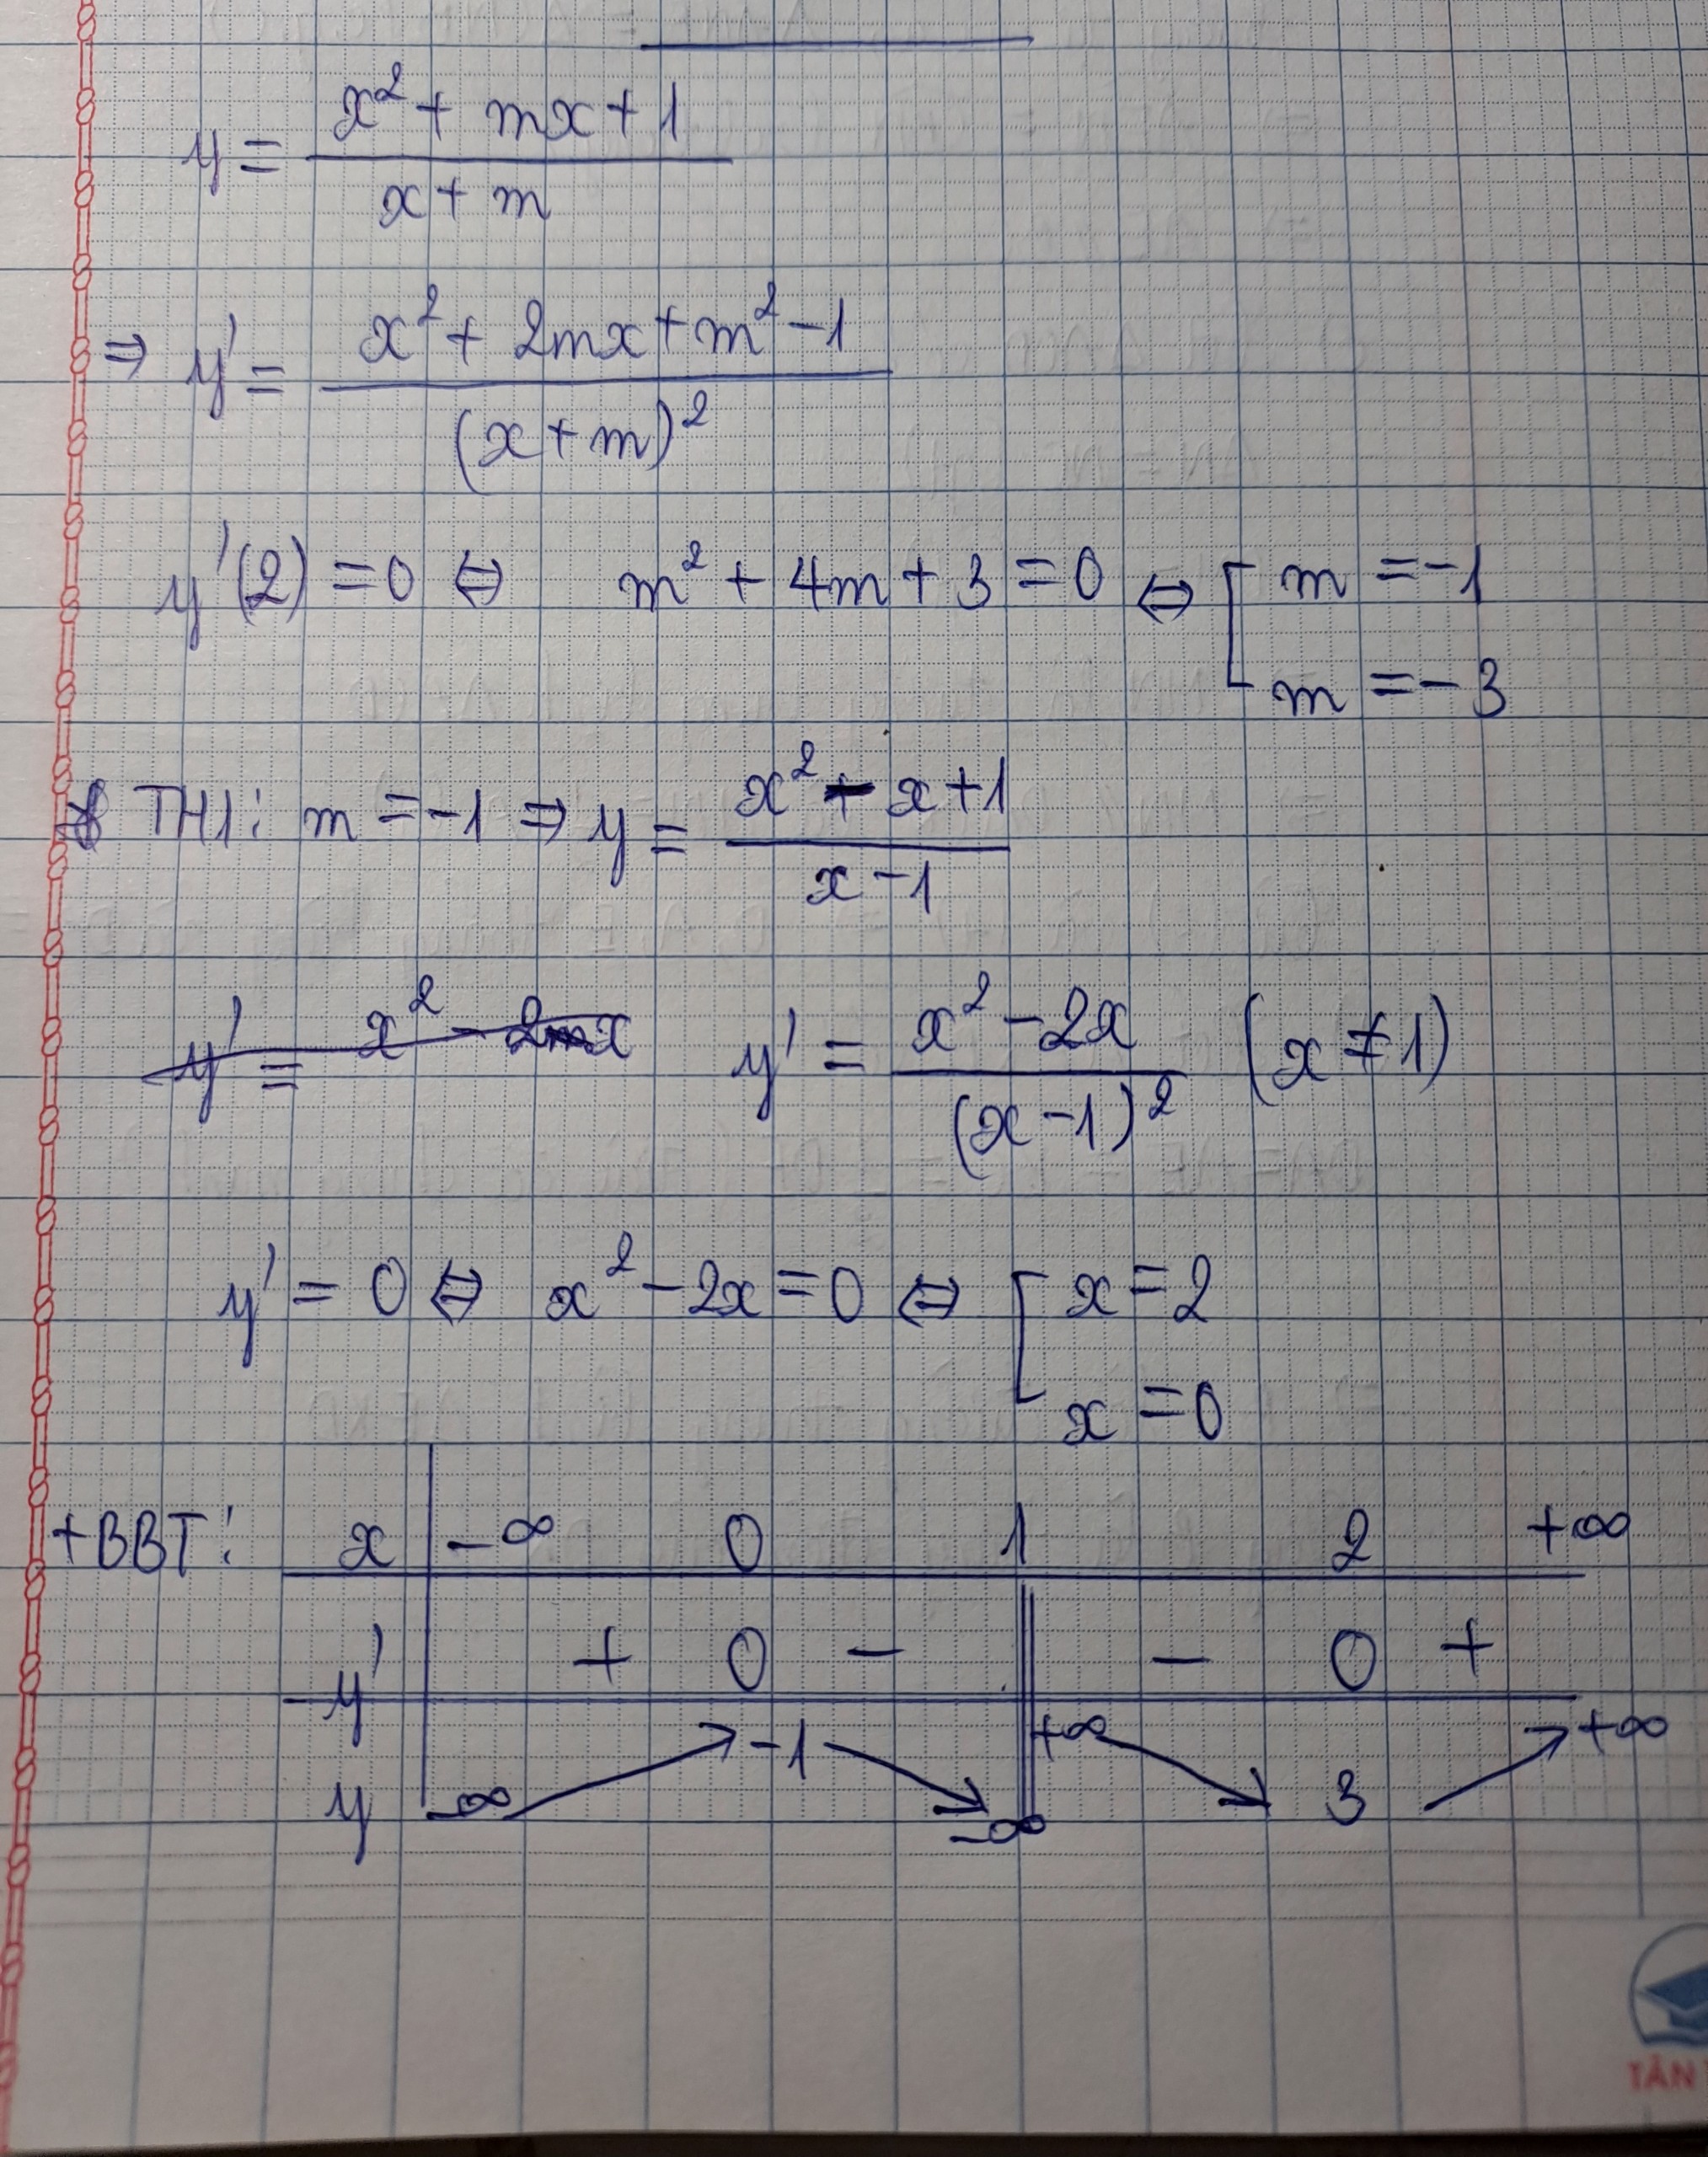 y = (x² + mx + 1) / (x + m)
⇒ y' = (x² + 2mx + m² - 1) / (x + m)²
y'(2) = 0 ⇔ m² + 4m + 3 = 0 ⇔ [ m = -1
m = -3
* TH1: m = -1 ⇒ y = (x² - x + 1) / (x - 1)
y' = x² - 2mx y' = (x² - 2x) / (x - 1)² (x ≠ 1)
y' = 0 ⇔ x² - 2x = 0 ⇔ [ x = 2
x = 0
+ BBT: x | -∞ 0 1 2 +∞
y' | + 0 - || - 0 +
y | -∞ ↗ -1 ↘ -∞ || +∞ ↘ 3 ↗ +∞
TÂN